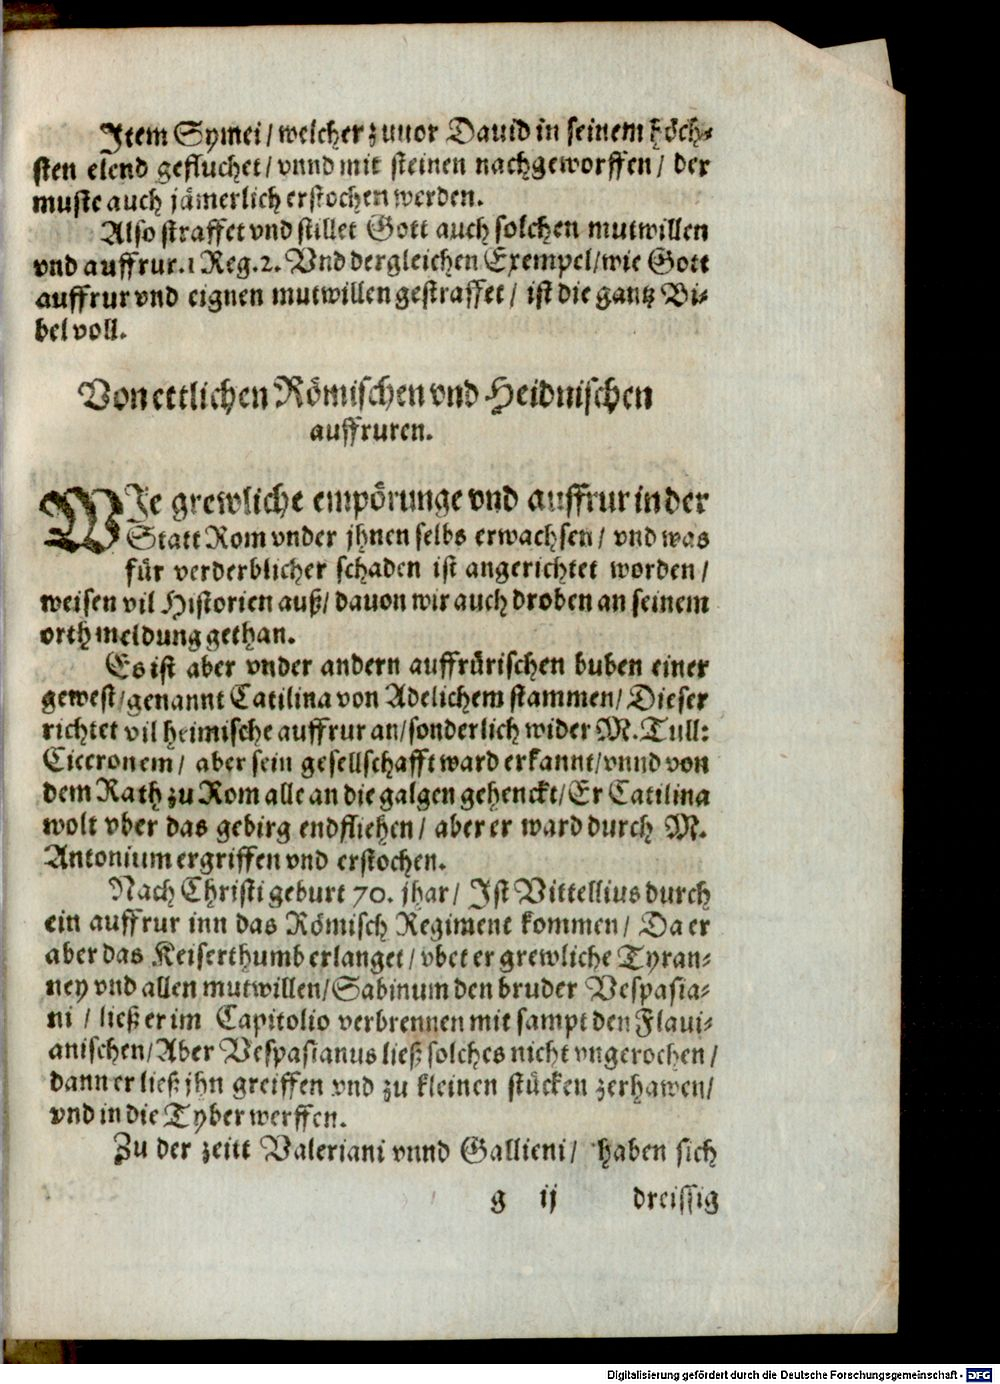 Item Symei / welcher zuuor Dauid in seinem höch-
sten elend gefluchet / vnnd mit steinen nachgeworffen / der
muste auch jämerlich erstochen werden.
Also straffet vnd stillet Gott auch solchen mutwillen
vnd auffrur. 1 Reg. 2. Vnd dergleichen Exempel / wie Gott
auffrur vnd eignen mutwillen gestraffet / ist die gantz Bi-
bel voll.
Von ettlichen Römischen vnd Heidnischen
auffruren.
WIe grewliche empörunge vnd auffrur in der
Statt Rom vnder jhnen selbs erwachsen / vnd was
für verderblicher schaden ist angerichtet worden /
weisen vil Historien auß / dauon wir auch droben an seinem
orth meldung gethan.
Es ist aber vnder andern auffrürischen buben einer
gewest / genannt Catilina von Adelichem stammen / Dieser
richtet vil heimische auffrur an / sonderlich wider M. Tull:
Ciceronem / aber sein gesellschafft ward erkannt / vnnd von
dem Rath zu Rom alle an die galgen gehenckt / Er Catilina
wolt vber das gebirg endfliehen / aber er ward durch M.
Antonium ergriffen vnd erstochen.
Nach Christi geburt 70. jhar / Ist Vittellius durch
ein auffrur inn das Römisch Regiment kommen / Da er
aber das Keiserthumb erlanget / vbet er grewliche Tyran-
ney vnd allen mutwillen / Sabinum den bruder Vespasia-
ni / ließ er im Capitolio verbrennen mit sampt den Flaui-
anischen / Aber Vespasianus ließ solches nicht vngerochen /
dann er ließ jhn greiffen vnd zu kleinen stücken zerhawen /
vnd in die Tyber werffen.
Zu der zeitt Valeriani vnnd Gallieni / haben sich
g ij dreissig
Digitalisierung gefördert durch die Deutsche Forschungsgemeinschaft - DFG